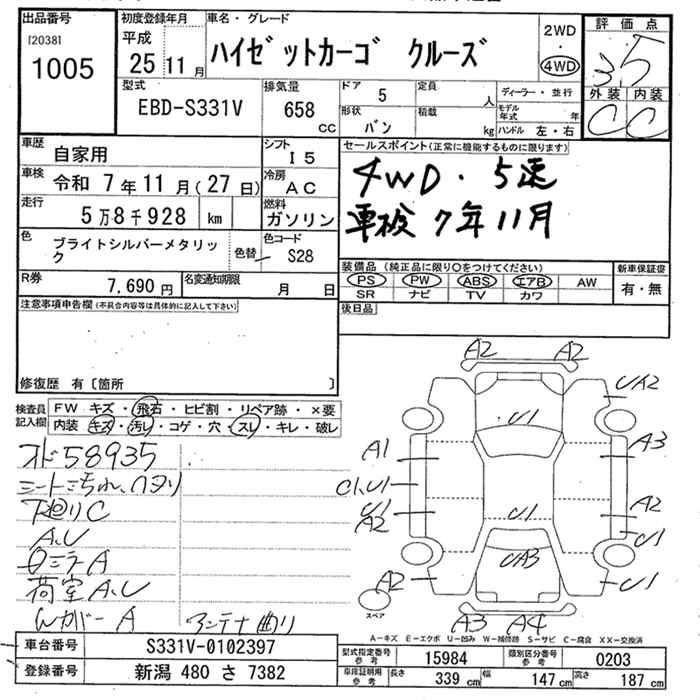 出品番号
[2038]
1005
初度登録年月
平成
25 11 月
車名・グレード
ハイゼットカーゴ クルーズ
2WD
・
4WD
評価点
3.5
外装 内装
C C
型式
EBD-S331V
排気量
658 cc
ドア 5
形状 バン
定員 人
積載 kg
ディーラー・並行
モデル年式 年
ハンドル 左・右
車歴 自家用
シフト I5
車検 令和 7年11月(27日)
冷房 AC
走行 5万8千928 km
燃料 ガソリン
色 ブライトシルバーメタリック
色替
色コード S28
R券 7,690円
名変通知期限 月 日
セールスポイント(正常に機能するものに限ります)
4WD・5速
車検 7年11月
装備品(純正品に限り〇をつけてください)
PS PW ABS エアB AW
SR ナビ TV カワ
新車保証書
有・無
後日品
注意事項申告欄(不具合内容等は具体的に記入して下さい)
修復歴 有〔箇所 〕
検査員記入欄
FW キズ・飛石・ヒビ割・リペア跡・×要
内装 キズ・汚レ・コゲ・穴・スレ・キレ・破レ
オド58935
シートよごれ、ヘタリ
下廻りC
A,U
ロミラA
荷室A,U
アンテナ曲り
A2 A2
UA2
U1
A1
A3
C1,U1
U1
A2
U1
A2
U1
UA3
A2
U1
スペア
A3 A4
A-キズ E-エクボ U-凹み W-補修跡 S-サビ C-腐食 XX-交換済
車台番号 S331V-0102397
登録番号 新潟 480 さ 7382
型式指定番号 参考 15984
類別区分番号 参考 0203
車庫証明用 参考 長さ 339 cm 幅 147 cm 高さ 187 cm